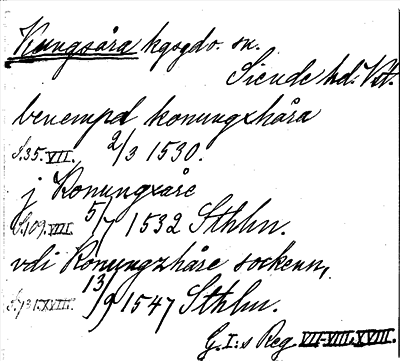 Kungsåra kgsgdo. sn.
Siende hd. Vstm.
benempd konungxhåra
S.35.VII. 2/3 1530.
j Konungxåre
S.109.VIII. 5/7 1532 Sthlm.
vdi Konungzhåre sockenn,
XVIII. 13/9 1547 Sthlm.
G.I:s Reg VII-VIII. XVIII.